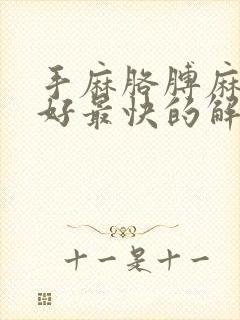 手麻胳膊麻
好最快的解
十一是十一